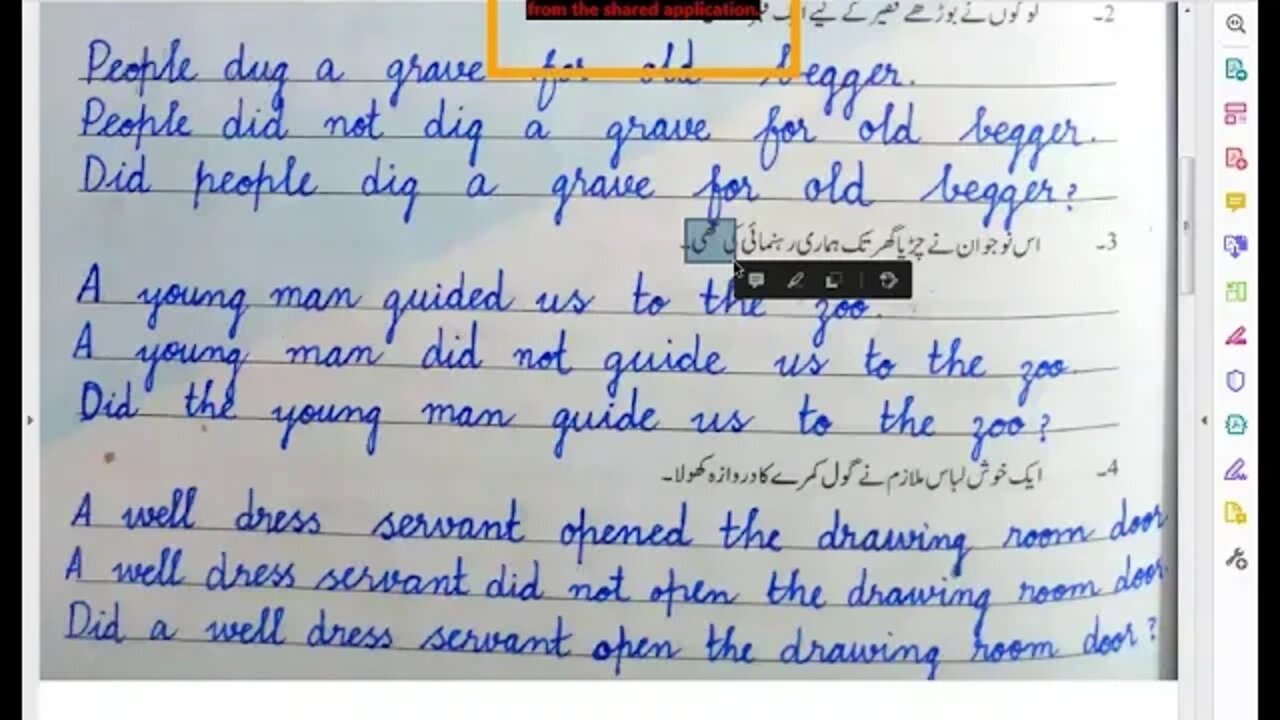 from the shared application.
2۔ لوگوں نے بوڑھے فقیر کے لیے ایک
People dug a grave for old begger.
People did not dig a grave for old begger.
Did people dig a grave for old begger?
3۔ اس نوجوان نے چڑیا گھر تک ہماری رہنمائی کی تھی۔
A young man guided us to the zoo.
A young man did not guide us to the zoo.
Did the young man guide us to the zoo?
4۔ ایک خوش لباس ملازم نے گول کمرے کا دروازہ کھولا۔
A well dress servant opened the drawing room door
A well dress servant did not open the drawing room door.
Did a well dress servant open the drawing room door?